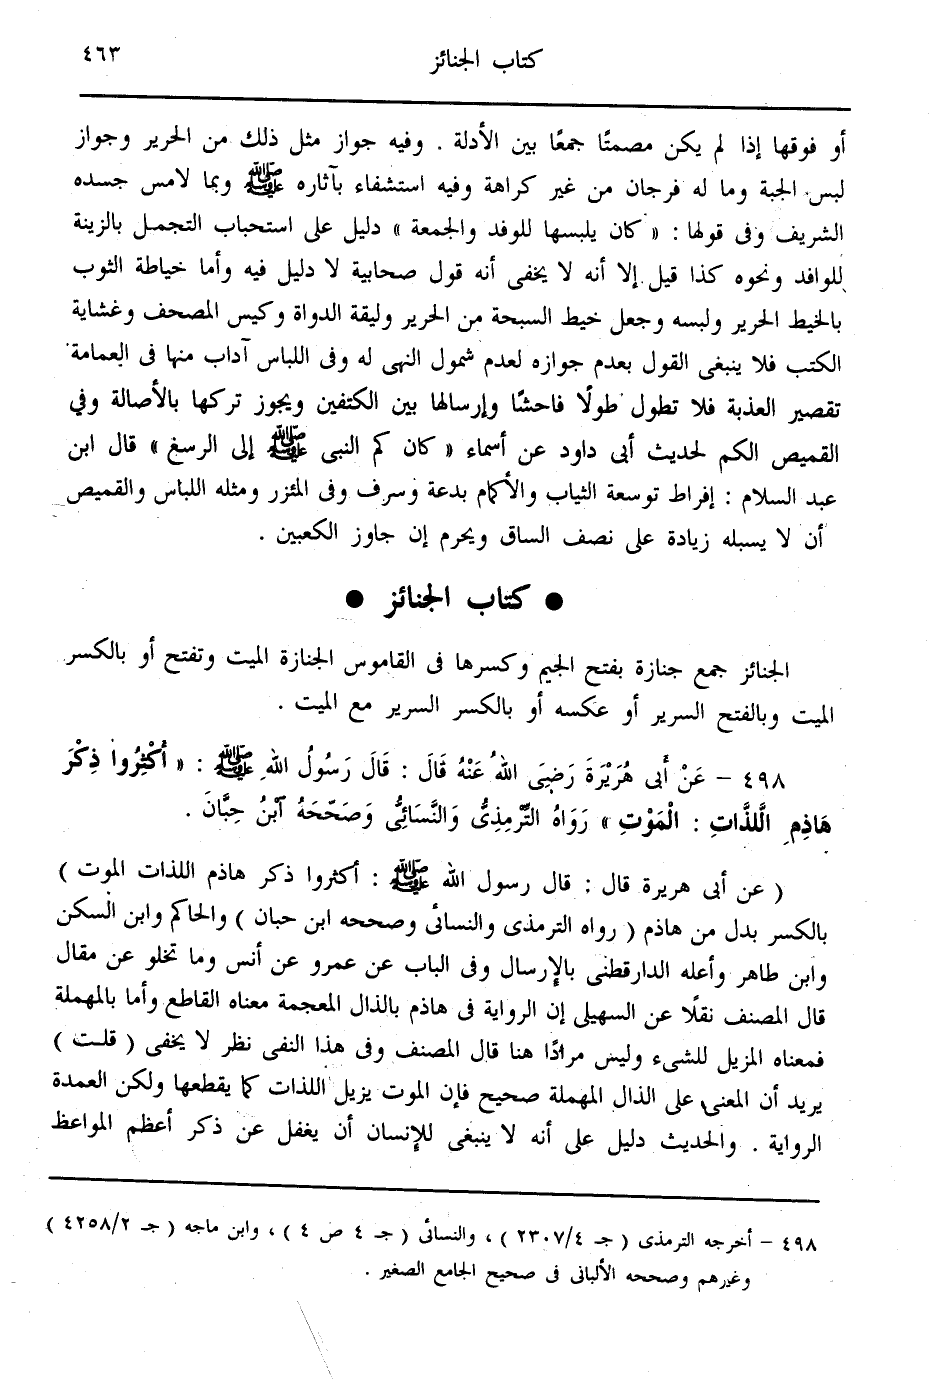 كتاب الجنائز ٤٦٣
أو فوقها إذا لم يكن مصمتًا جمعًا بين الأدلة . وفيه جواز مثل ذلك من الحرير وجواز
لبس الجبة وما له فرجان من غير كراهة وفيه استشفاء بآثاره ﷺ وبما لامس جسده
الشريف وفى قولها : « كان يلبسها للوفد والجمعة » دليل على استحباب التجمل بالزينة
للوافد ونحوه كذا قيل إلا أنه لا يخفى أنه قول صحابية لا دليل فيه وأما خياطة الثوب
بالخيط الحرير ولبسه وجعل خيط السبحة من الحرير وليقة الدواة وكيس المصحف وغشاية
الكتب فلا ينبغى القول بعدم جوازه لعدم شمول النهى له وفى اللباس آداب منها فى العمامة
تقصير العذبة فلا تطول طولًا فاحشًا وإرسالها بين الكتفين ويجوز تركها بالأصالة وفي
القميص الكم لحديث أبى داود عن أسماء « كان كم النبى ﷺ إلى الرسغ » قال ابن
عبد السلام : إفراط توسعة الثياب والأكمام بدعة وسرف وفى المئزر ومثله اللباس والقميص
أن لا يسبله زيادة على نصف الساق ويحرم إن جاوز الكعبين .
● كتاب الجنائز ●
الجنائز جمع جنازة بفتح الجيم وكسرها فى القاموس الجنازة الميت وتفتح أو بالكسر
الميت وبالفتح السرير أو عكسه أو بالكسر السرير مع الميت .
٤٩٨ – عَنْ أَبِى هُرَيْرَةَ رَضِىَ اللهُ عَنْهُ قَالَ : قَالَ رَسُولُ اللهِ ﷺ : « أَكْثِرُوا ذِكْرَ
هَاذِمِ اللَّذَّاتِ : الْمَوْتِ » رَوَاهُ التِّرْمِذِىُّ وَالنَّسَائِىُّ وَصَحَّحَهُ ابْنُ حِبَّانَ .
( عن أبى هريرة قال : قال رسول الله ﷺ : أكثروا ذكر هاذم اللذات الموت )
بالكسر بدل من هاذم ( رواه الترمذى والنسائى وصححه ابن حبان ) والحاكم وابن السكن
وابن طاهر وأعله الدارقطنى بالإرسال وفى الباب عن عمرو عن أنس وما تخلو عن مقال
قال المصنف نقلًا عن السهيلى إن الرواية فى هاذم بالذال المعجمة معناه القاطع وأما بالمهملة
فمعناه المزيل للشىء وليس مرادًا هنا قال المصنف وفى هذا النفى نظر لا يخفى ( قلت )
يريد أن المعنى على الذال المهملة صحيح فإن الموت يزيل اللذات كما يقطعها ولكن العمدة
الرواية . والحديث دليل على أنه لا ينبغى للإنسان أن يغفل عن ذكر أعظم المواعظ
٤٩٨ – أخرجه الترمذى ( جـ ٢٣٠٧/٤ ) ، والنسائى ( جـ ٤ ص ٤ ) ، وابن ماجه ( جـ ٤٢٥٨/٢ )
وغيرهم وصححه الألبانى فى صحيح الجامع الصغير .